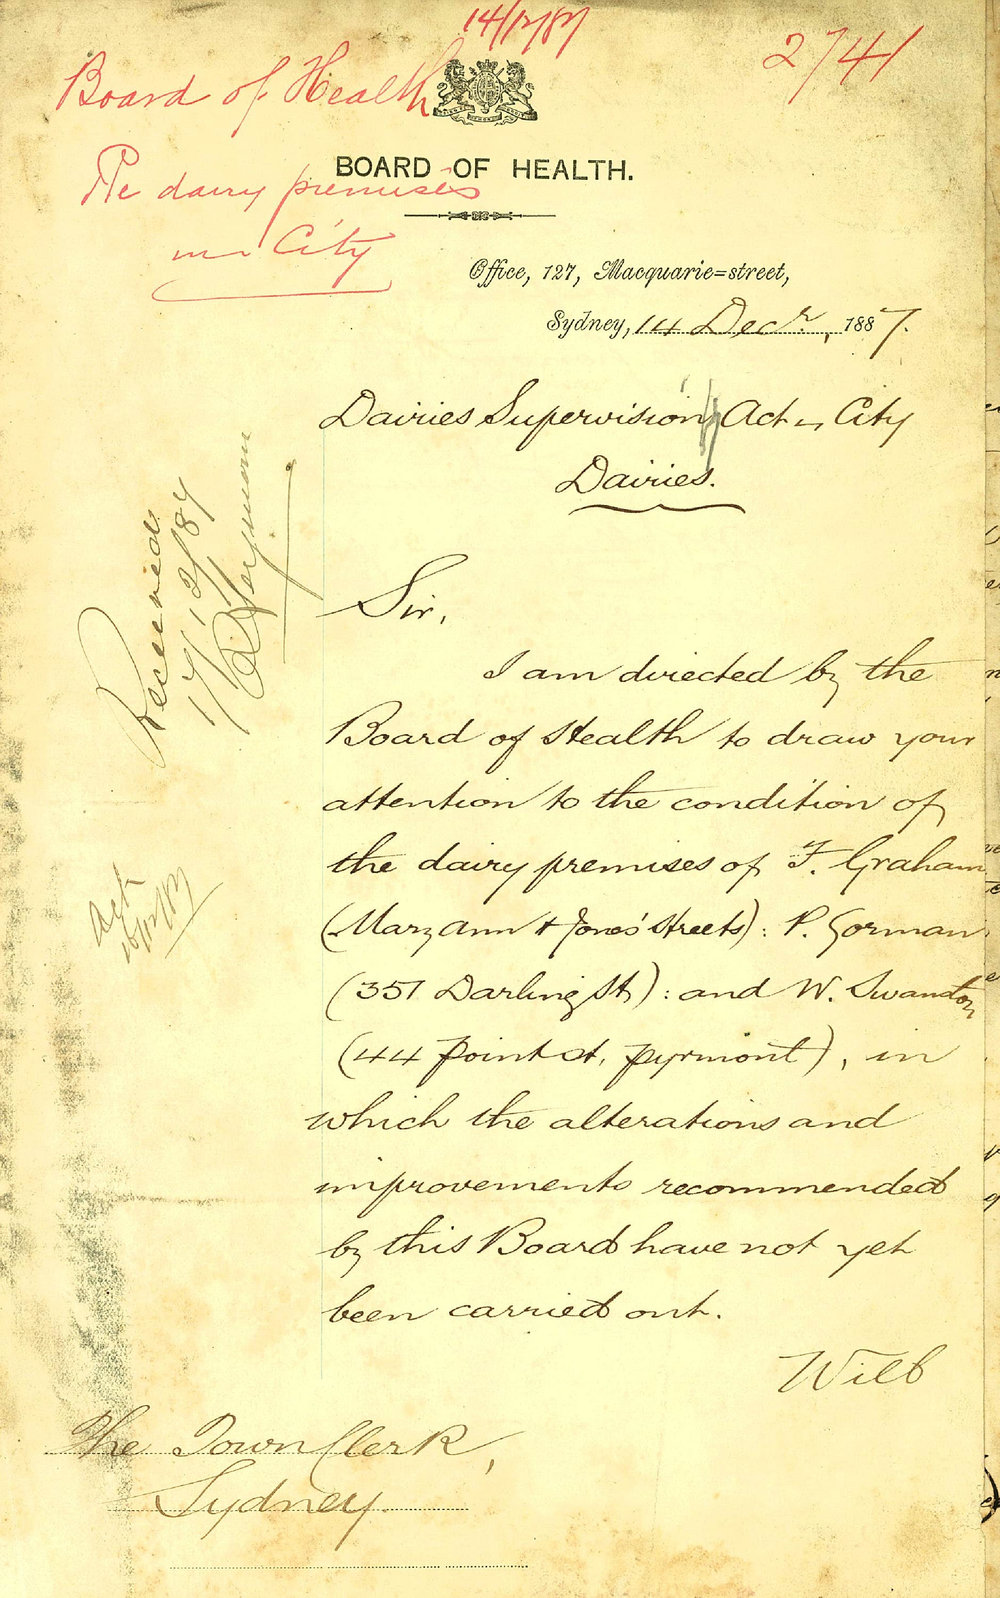 14/12/87
2741
Board of Health
Re dairy premises
in City
BOARD OF HEALTH.
Office, 127, Macquarie=street,
Sydney, 14 Decr, 1887.
Dairies Supervision Act - City
Dairies.
Received
17/12/87
Sir,
I am directed by the
Board of Health to draw your
attention to the condition of
the dairy premises of F. Graham
(Mary Ann & Jones' Streets): P. Gorman
(351 Darling St): and W. Swanston
(44 Point St, Pyrmont), in
which the alterations and
improvements recommended
by this Board have not yet
been carried out.
Ack
16/12/87
Will
The Town Clerk,
Sydney.